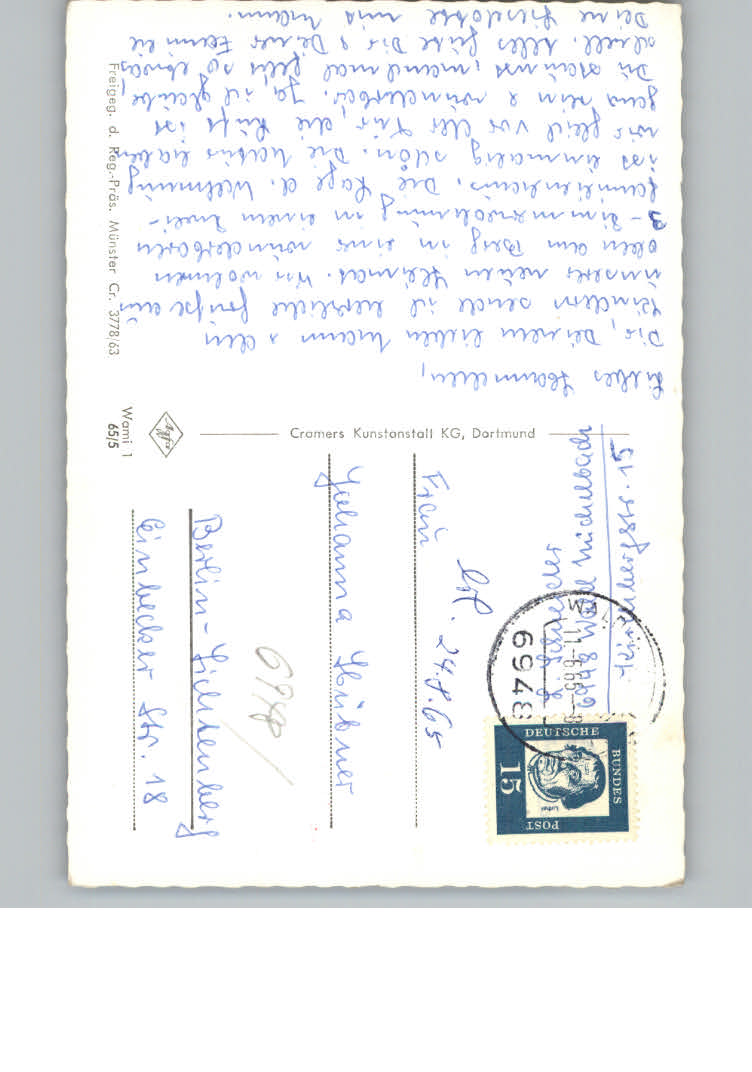 Liebes Hannchen,
Dir, Deinem lieben Mann u den
Kindern sende ich herzliche Grüße aus
unserer neuen Heimat. Wir wohnen
oben am Berg in einer wunderbaren
3-Zimmerwohnung in einem Zwei-
familienhaus. Die Lage d. Wohnung
ist einmalig schön. Die Natur haben
wir gleich vor der Tür, die Luft ist
ganz rein u wunderbar. Ja, ich glaube
Du staunst, manchmal geht so etwas
schnell. Alles Gute Dir u Deiner Familie
Deine Lieselotte mit Mann.
Freigeg. d. Reg.-Präs. Münster Cr. 3778/63
Wami 1
65/5
Agfa
Cramers Kunstanstalt KG, Dortmund
6948 Wald Michelbach
15
6948
11.-6.65
DEUTSCHE
BUNDES
POST
15
Luther
24.8.65
Frau
Johanna Hübner
6948
Berlin-Lichtenberg
Einbecker Str. 18